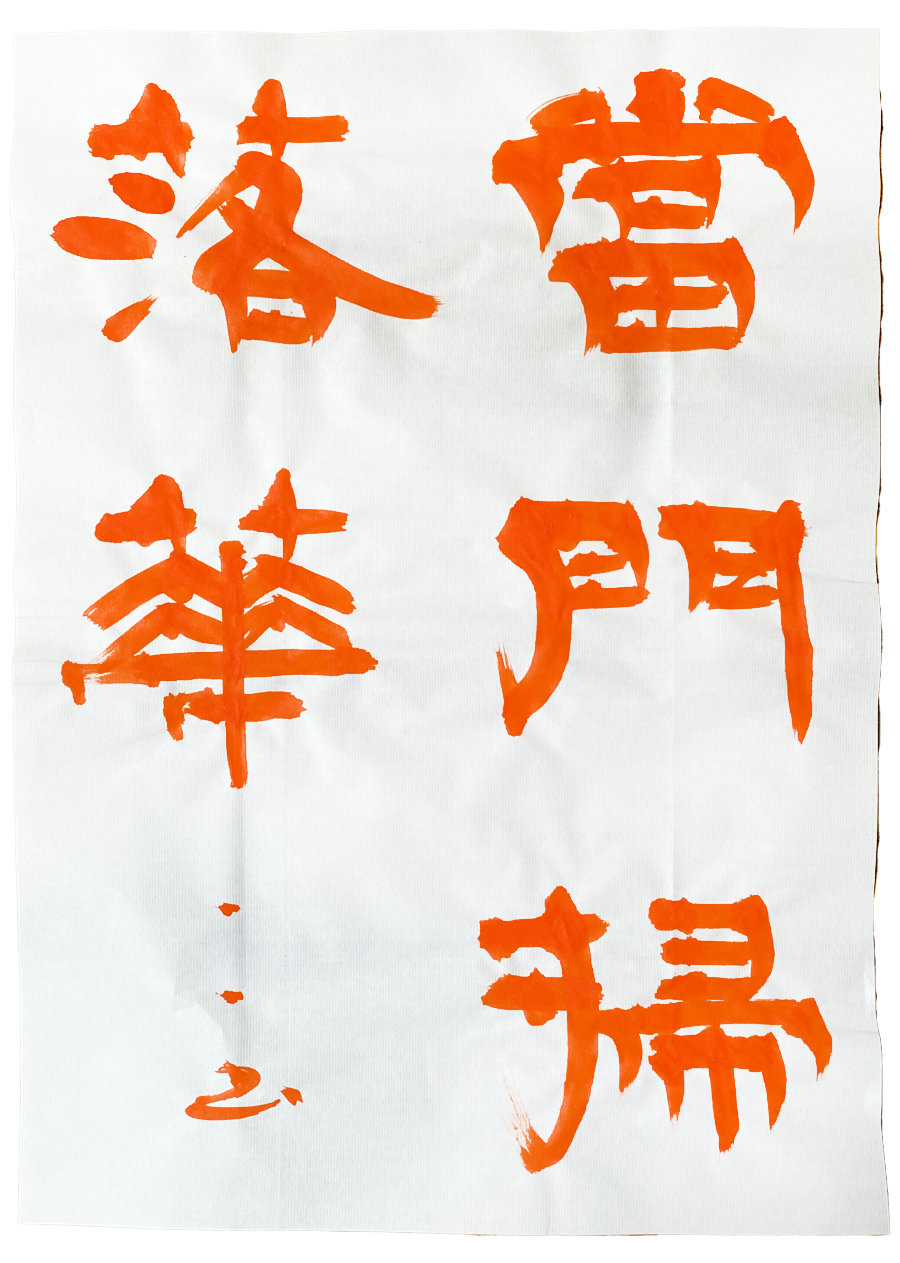 當門掃
落華